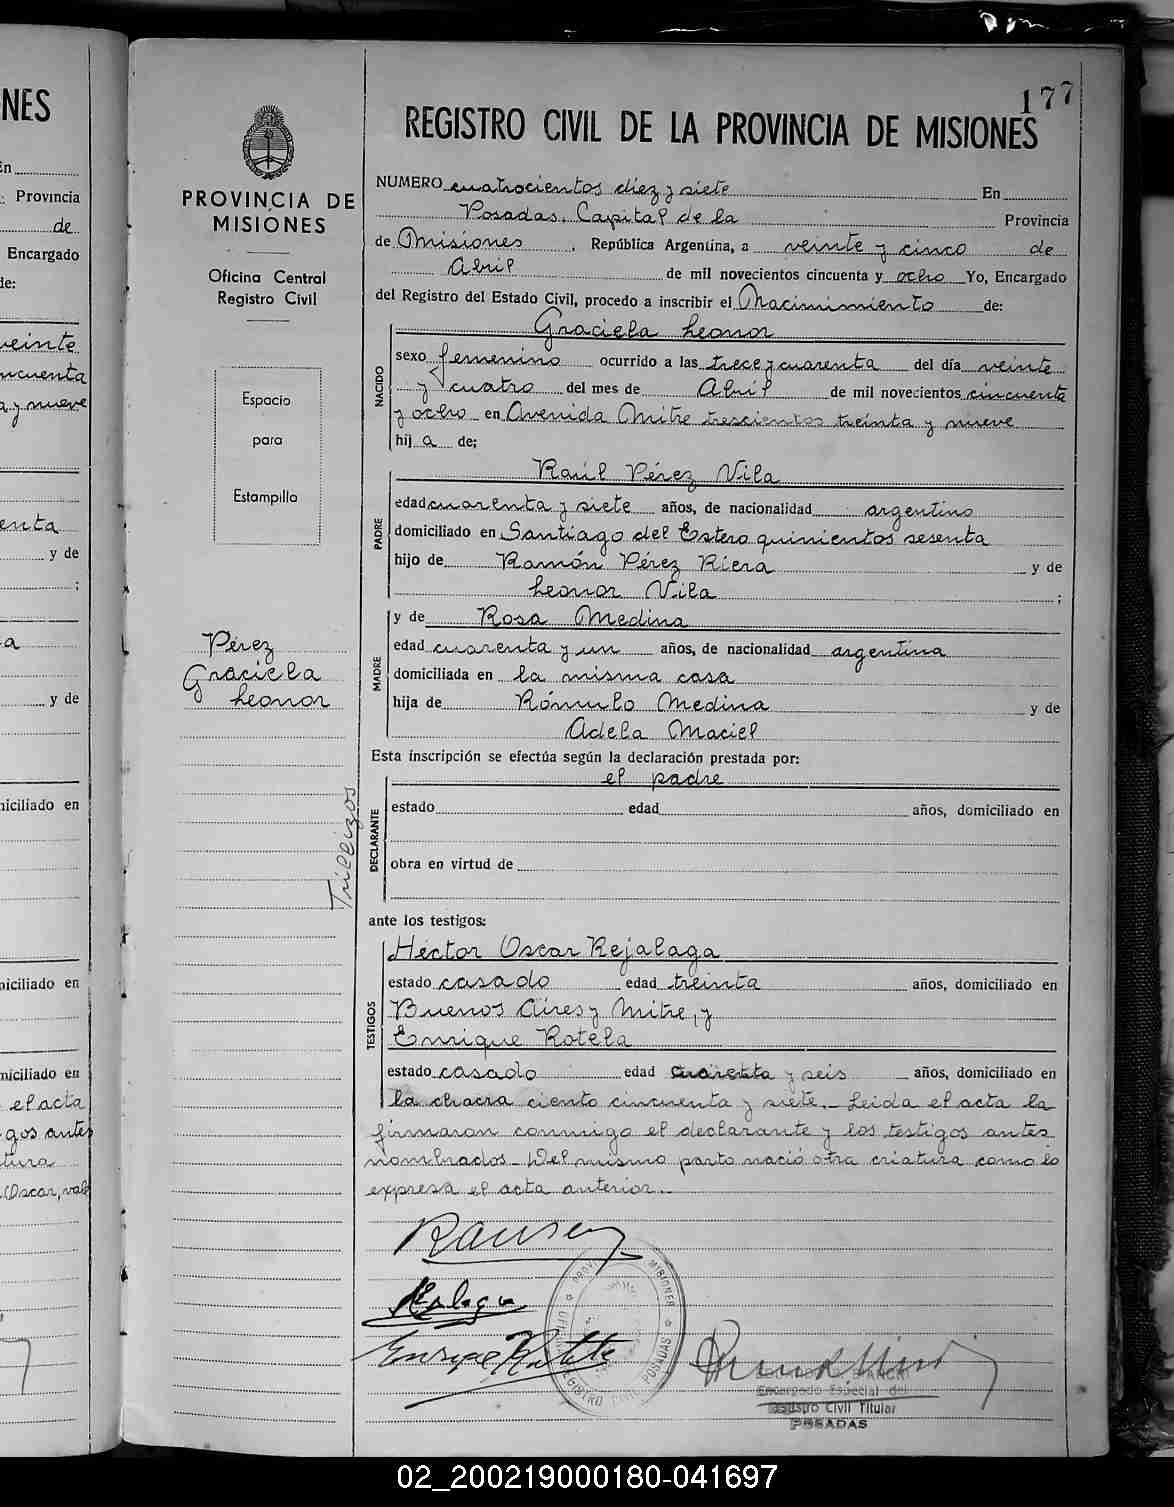 NES
En
Provincia
de
Encargado
de:
veinte
cincuenta
a y nueve
enta
y de
;
a
y de
niciliado en
niciliado en
niciliado en
el acta
gos antes
tura
Oscar, vale
177
PROVINCIA DE
MISIONES
Oficina Central
Registro Civil
Espacio
para
Estampilla
Pérez
Graciela
Leonor
Trillizos
REGISTRO CIVIL DE LA PROVINCIA DE MISIONES
NUMERO cuatrocientos diez y siete En
Posadas, Capital de la Provincia
de Misiones, República Argentina, a veinte y cinco de
Abril de mil novecientos cincuenta y ocho Yo, Encargado
del Registro del Estado Civil, procedo a inscribir el Nacimimiento de:
Graciela Leonor
NACIDO
sexo femenino ocurrido a las trece y cuarenta del día veinte
y cuatro del mes de Abril de mil novecientos cincuenta
y ocho en Avenida Mitre trescientos treinta y nueve
hij a de:
Raúl Pérez Vila
PADRE
edad cuarenta y siete años, de nacionalidad argentino
domiciliado en Santiago del Estero quinientos sesenta
hijo de Ramón Pérez Riera y de
Leonor Vila ;
y de Rosa Medina
MADRE
edad cuarenta y un años, de nacionalidad argentina
domiciliada en la misma casa
hija de Rómulo Medina y de
Adela Maciel
Esta inscripción se efectúa según la declaración prestada por:
el padre
DECLARANTE
estado edad años, domiciliado en
obra en virtud de
ante los testigos:
Héctor Oscar Rejalaga
TESTIGOS
estado casado edad treinta años, domiciliado en
Buenos Aires y Mitre, y
Enrique Rotela
estado casado edad cuarenta y seis años, domiciliado en
la chacra ciento cincuenta y siete.- Leida el acta la
firmaron conmigo el declarante y los testigos antes
nombrados.- Del mismo parto nació otra criatura como lo
expresa el acta anterior.-
Enrique Rotela
MISIONES
POSADAS
BIANCHI
Encargado Especial del
Registro Civil Titular
POSADAS
02_200219000180-041697